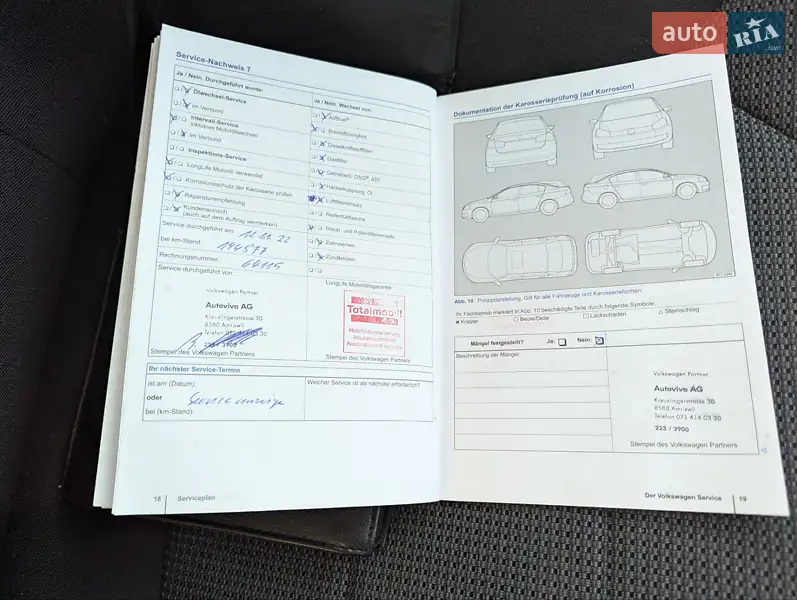 auto RIA .com
Service-Nachweis 7
Ja / Nein. Durchgeführt wurde:
Ölwechsel-Service
im Verbund
Intervall-Service
inklusive Motorölwechsel
im Verbund
Inspektions-Service
LongLife Motoröl verwendet
Korrosionsschutz der Karosserie prüfen
Reparaturempfehlung
Kundenwunsch
(auch auf dem Auftrag vermerken)
Service durchgeführt am:
bei km-Stand: 194577
Rechnungsnummer: 64115
Service durchgeführt von:
Volkswagen Partner
Autoviva AG
Kreuzlingerstrasse 30
8580 Amriswil
Telefon 071 414 03 30
223 / 3900
Stempel des Volkswagen Partners
Ja / Nein. Wechsel von:
AdBlue®
Bremsflüssigkeit
Dieselkraftstofffilter
Gasfilter
Getriebeöl- DSG®, ATF
Haldexkupplung: Öl
Luftfiltereinsatz
Reifenfüllflasche
Staub- und Pollenfiltereinsatz
Zahnriemen
Zündkerzen
LongLife Mobilitätsgarantie
Totalmobil!
Stempel des Volkswagen Partners
Ihr nächster Service-Termin
ist am (Datum):
oder Serviceanzeige
bei (km-Stand):
Welcher Service ist als nächster erforderlich?
18 Serviceplan
Dokumentation der Karosserieprüfung (auf Korrosion)
Abb. 10 Prinzipdarstellung. Gilt für alle Fahrzeuge und Karosserieformen.
Ihr Fachbetrieb markiert in Abb. 10 beschädigte Teile durch folgende Symbole:
Kratzer Beule/Delle Lackschaden Steinschlag
Mängel festgestellt? Ja: Nein:
Beschreibung der Mängel:
Volkswagen Partner
Autoviva AG
Kreuzlingerstrasse 30
8580 Amriswil
Telefon 071 414 03 30
223 / 3900
Stempel des Volkswagen Partners
Der Volkswagen Service 19